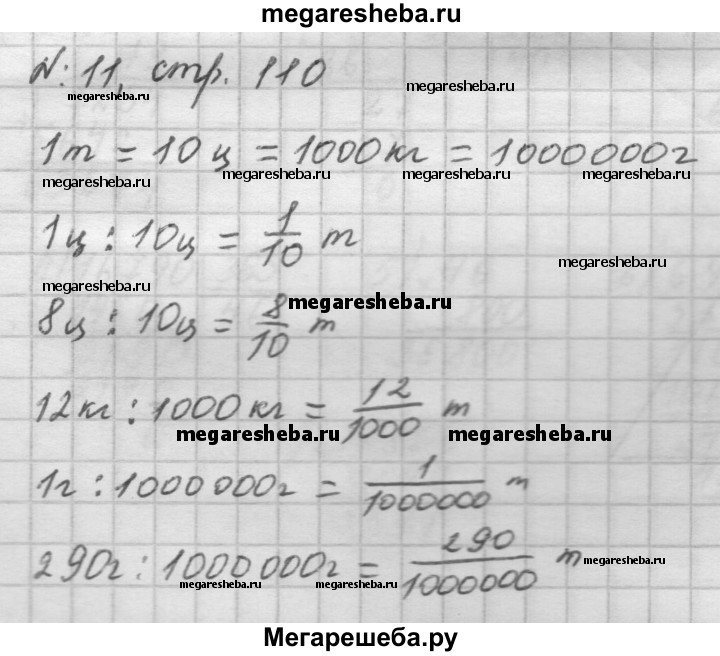 megaresheba.ru
N: 11, стр. 110
megaresheba.ru
megaresheba.ru
1т = 10ц = 1000кг = 1000000г
megaresheba.ru megaresheba.ru megaresheba.ru megaresheba.ru
1ц : 10ц = 1/10 т
megaresheba.ru
megaresheba.ru
8ц : 10ц = 8/10 т
megaresheba.ru
12кг : 1000кг = 12/1000 т
megaresheba.ru megaresheba.ru
1г : 1000 000г = 1/1000000 т
290г : 1000 000г = 290/1000000 т
megaresheba.ru
megaresheba.ru megaresheba.ru
Мегарешеба.ру